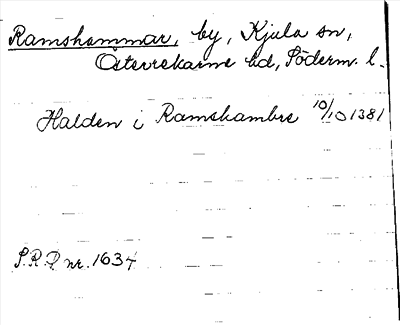 Ramshammar, by, Kjula sn,
Österrekarne hd, Söderm. l.
Halden i Ramshambre 10/10 1381
S.R.P. nr. 1634